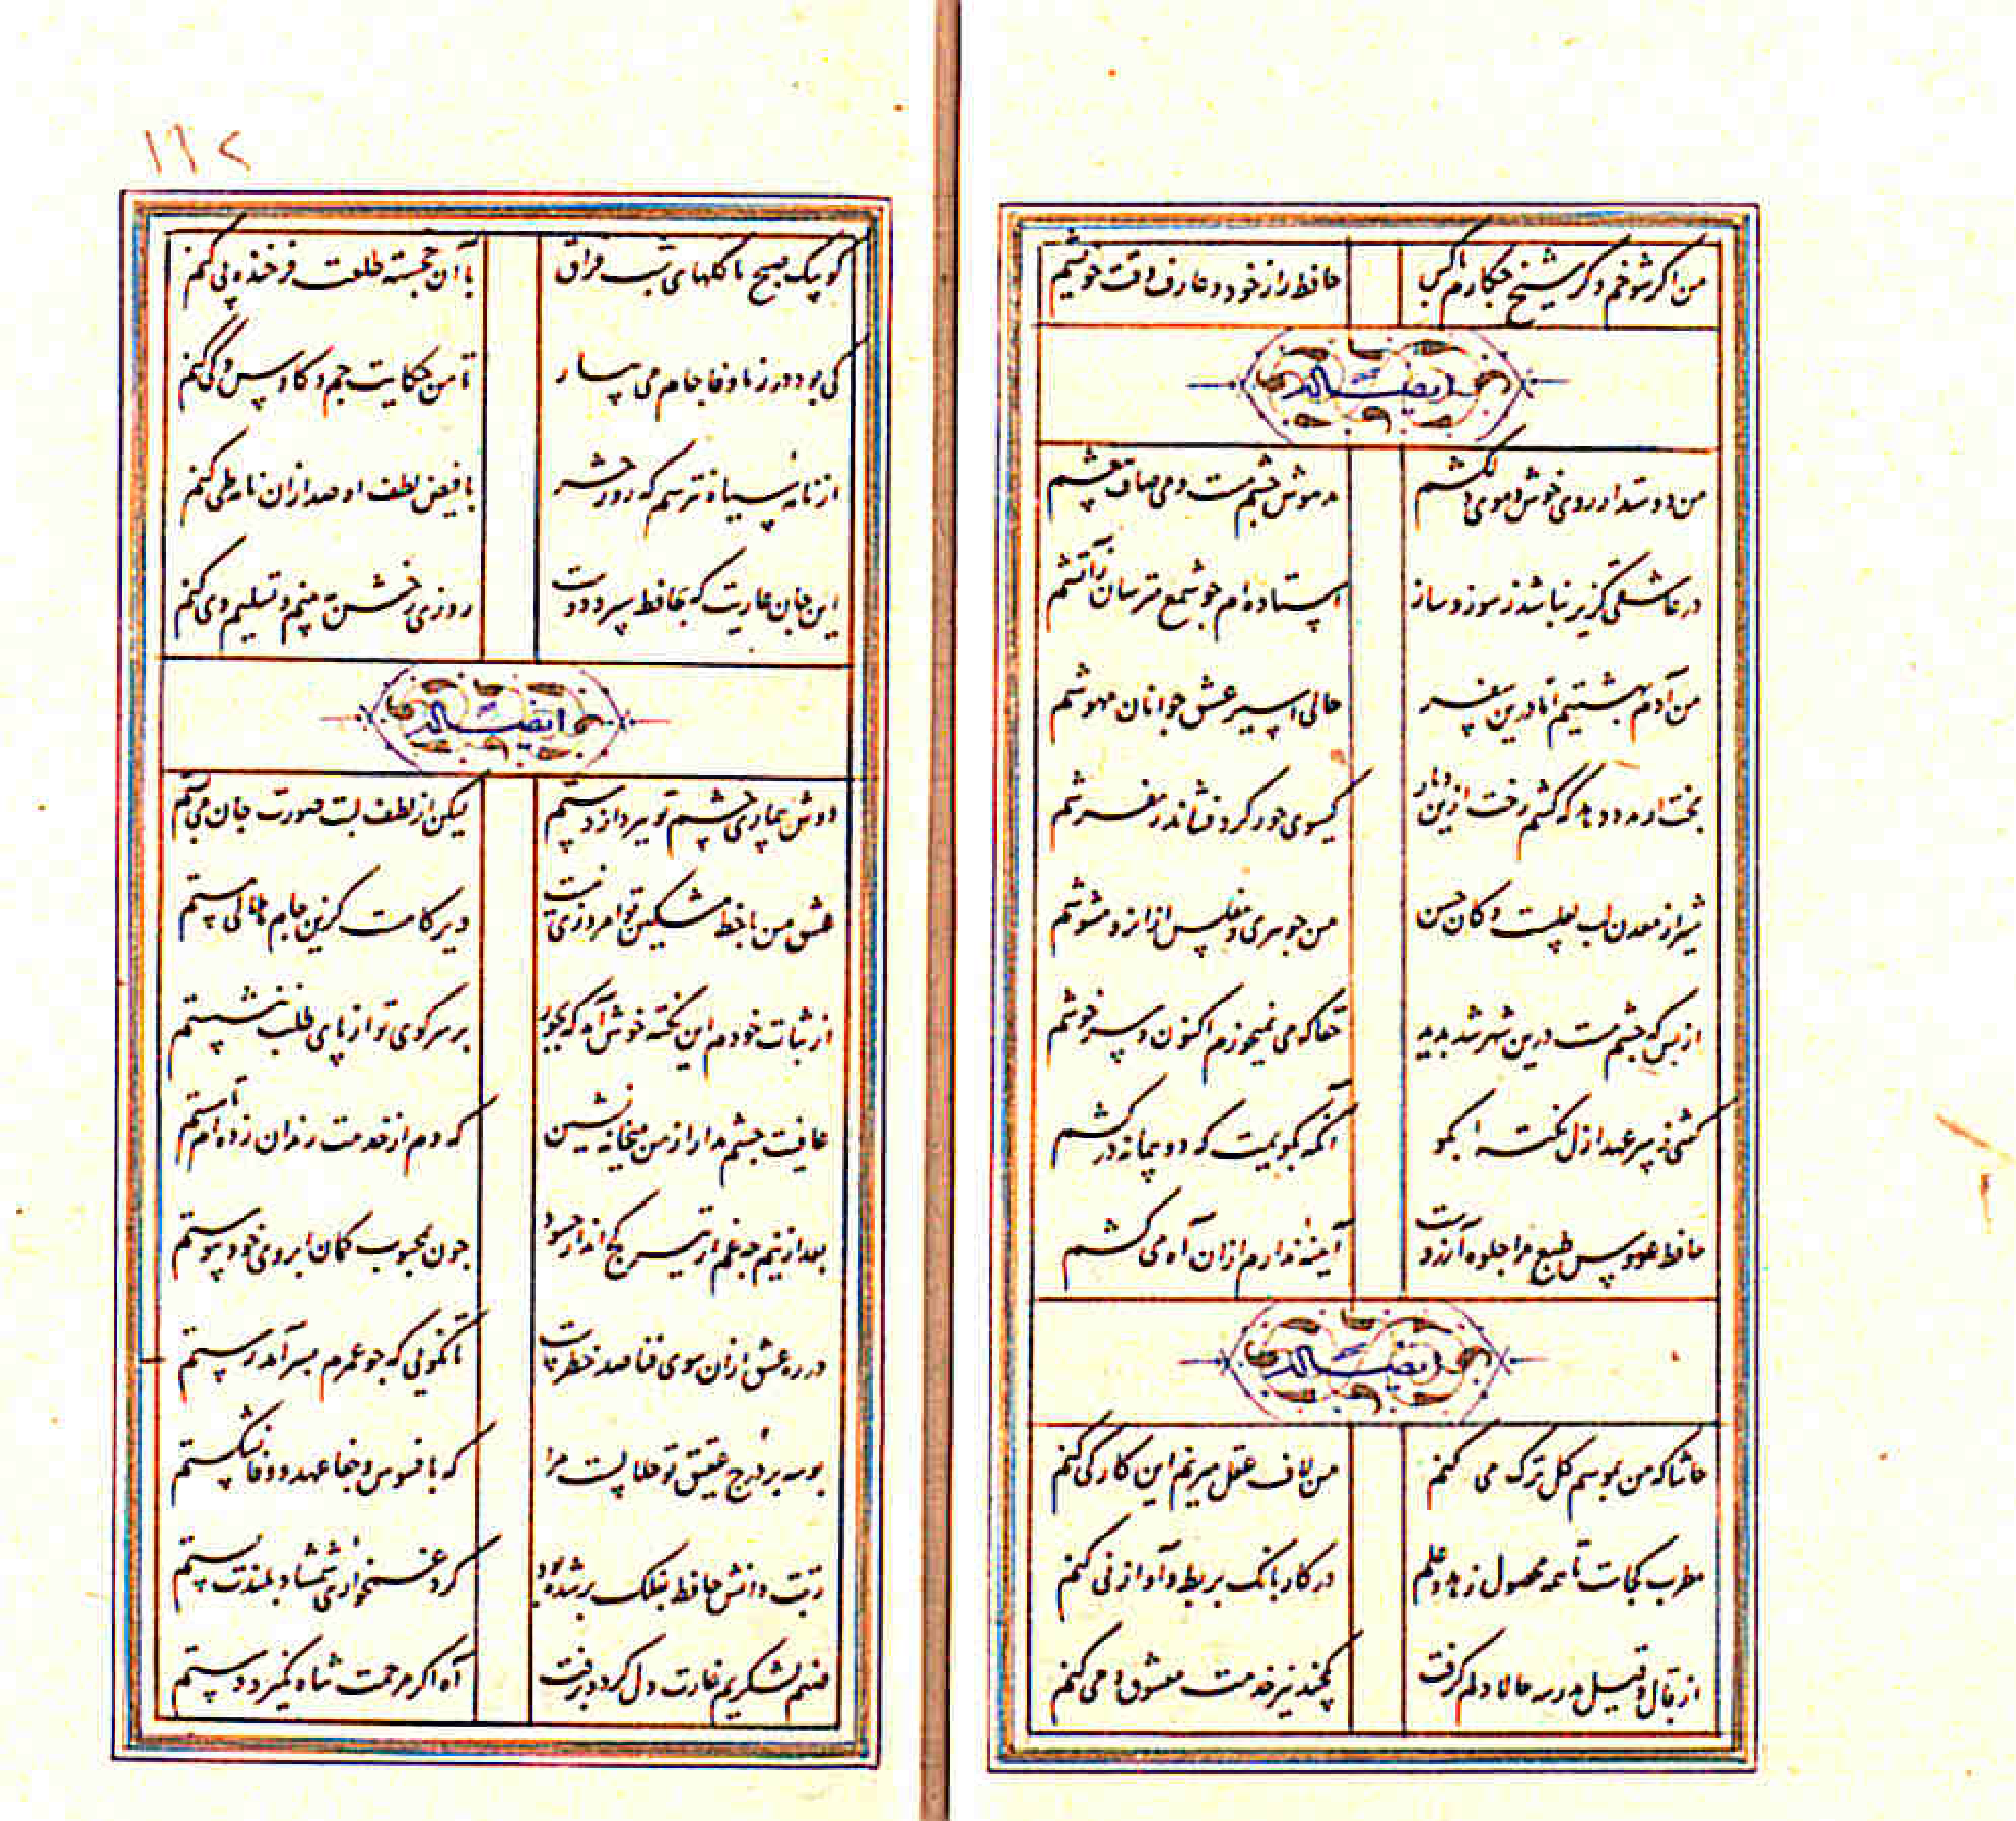 من اکر شوخم و کر شیخ جکارم باکس حافظ راز خود و عارف وقت خویشم
ایضاله
من دوستدار روی خوش و موی دلکشم مدهوش جشم مست و می صاف بیغشم
در عاشقی کزیر نباشد ز سوز و ساز استاده‌ام جو شمع مترسان ز آتشم
من آدم بهشتیم اما درین سفر حالی اسیر عشق جوانان مهوشم
بخت ار مدد دهد که کشم رخت ازین دیار کیسوی حور کرد فشاند ز مفرشم
شیراز معدن لب لعلست و کان حسن من جوهری مفلس ازانرو مشوشم
از بس که جشم مست درین شهر شد بدید حقا که می نمیخورم اکنون و سر خوشم
کفتی ز سر عهد ازل نکته‌ا بکو آنکه بکویمت که دو پیمانه در کشم
حافظ عروس طبع مرا جلوه آرزوست آیینه ندارم ازان آه می کشم
ایضاله
حاشا که من بموسم کل ترک می کنم من لاف عقل میزنم این کار کی کنم
مطرب کجاست تا همه محصول زهد و علم در کار بانک بربط و آواز نی کنم
از قال و قیل مدرسه حالا دلم کرفت یکچند نیز خدمت معشوق و می کنم
۱۶۲
کو پیک صبح تا کلهای شب فراق با آن خجسته طلعت فرخنده پی کنم
کی بود در زمانه وفا جام می بیار تا من حکایت جم و کاوس و کی کنم
از نامه سیاه نترسم که روز حشر با فیض لطف او صد ازان نامه طی کنم
این جان عاریت که بحافظ سپرد دوست روزی رخش ببینم و تسلیم وی کنم
ایضاله
دوش بیماری جشم تو ببرد از دستم لیکن از لطف لبت صورت جان می بستم
عشق من با خط مشکین تو امروزی نیست دیرکاست کزین جام هلالی مستم
از ثبات خودم این نکته خوش آمد که بجور بر سر کوی تو از پای طلب ننشستم
عافیت جشم مدار از من میخانه نشین که دم از خدمت رندان زده‌ام تا هستم
بعد ازینم جه غم از تیر کج انداز حسود جون بمحبوب کمان ابروی خود پیوستم
در ره عشق ازان سوی فنا صد خطرست تا نکویی که جو عمرم بسر آمد رستم
بوسه بر درج عقیق تو حلالست مرا که بافسوس و جفا عهد و وفا نشکستم
رتبت دانش حافظ بفلک بر شده بود کرد غمخواری شمشاد بلندت پستم
صنم لشکریم غارت دل کرد و برفت آه اکر مرحمت شاه نکیرد دستم